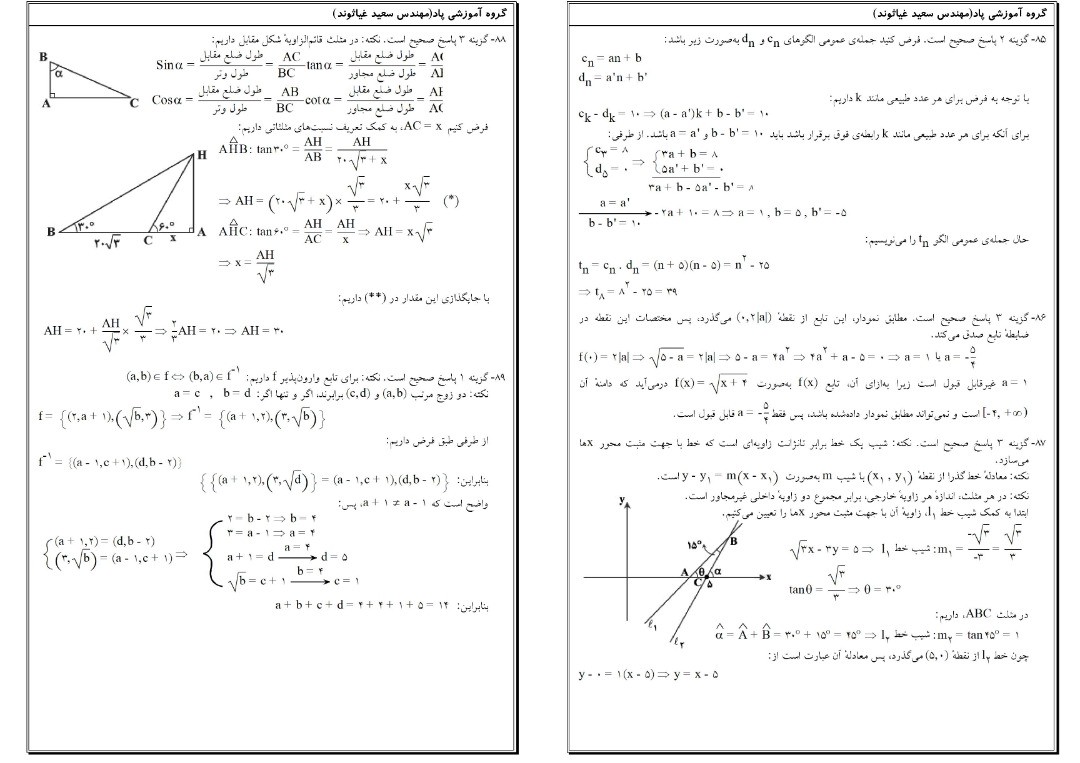 گروه آموزشی پاد(مهندس سعید غیاثوند)
۸۵- گزینه ۲ پاسخ صحیح است. فرض کنید جمله‌ی عمومی الگوهای cₙ و dₙ به‌صورت زیر باشد:
cₙ = an + b
dₙ = a'n + b'
با توجه به فرض برای هر عدد طبیعی مانند k داریم:
cₖ - dₖ = ۱۰ ⇒ (a - a')k + b - b' = ۱۰
برای آنکه برای هر عدد طبیعی مانند k رابطه‌ی فوق برقرار باشد باید b - b' = ۱۰ و a = a' باشد. از طرفی:
{c۳ = ۸ ⇒ {۳a + b = ۸
d۵ = ۰ ۵a' + b' = ۰
۳a + b - ۵a' - b' = ۸
a = a'
b - b' = ۱۰ → -۲a + ۱۰ = ۸ ⇒ a = ۱ , b = ۵ , b' = -۵
حال جمله‌ی عمومی الگو tₙ را می‌نویسیم:
tₙ = cₙ . dₙ = (n + ۵)(n - ۵) = n² - ۲۵
⇒ t۸ = ۸² - ۲۵ = ۳۹
۸۶- گزینه ۳ پاسخ صحیح است. مطابق نمودار، این تابع از نقطهٔ (۰,۲|a|) می‌گذرد، پس مختصات این نقطه در
ضابطهٔ تابع صدق می‌کند.
f(۰) = ۲|a| ⇒ √(۵ - a) = ۲|a| ⇒ ۵ - a = ۴a² ⇒ ۴a² + a - ۵ = ۰ ⇒ a = ۱ یا a = -۵/۴
a = ۱ غیرقابل قبول است زیرا به‌ازای آن، تابع f(x) به‌صورت f(x) = √(x + ۴) درمی‌آید که دامنهٔ آن
[-۴, +∞) است و نمی‌تواند مطابق نمودار داده‌شده باشد، پس فقط a = -۵/۴ قابل قبول است.
۸۷- گزینه ۳ پاسخ صحیح است. نکته: شیب یک خط برابر تانژانت زاویه‌ای است که خط با جهت مثبت محور xها
می‌سازد.
نکته: معادلهٔ خط گذرا از نقطهٔ (x₁ , y₁) با شیب m به‌صورت y - y₁ = m(x - x₁) است.
نکته: در هر مثلث، اندازهٔ هر زاویهٔ خارجی، برابر مجموع دو زاویهٔ داخلی غیرمجاور است.
ابتدا به کمک شیب خط l₁، زاویهٔ آن با جهت مثبت محور xها را تعیین می‌کنیم.
√۳x - ۳y = ۵ ⇒ l₁ شیب خط :m₁ = -√۳/-۳ = √۳/۳
tanθ = √۳/۳ ⇒ θ = ۳۰°
y
۱۵°
B
A θ α
C ۵
x
ℓ₁
ℓ₂
در مثلث ABC، داریم:
α̂ = Â + B̂ = ۳۰° + ۱۵° = ۴۵° ⇒ l₂ شیب خط :m₂ = tan۴۵° = ۱
چون خط l₂ از نقطهٔ (۵,۰) می‌گذرد، پس معادلهٔ آن عبارت است از:
y - ۰ = ۱(x - ۵) ⇒ y = x - ۵
گروه آموزشی پاد(مهندس سعید غیاثوند)
۸۸- گزینه ۳ پاسخ صحیح است. نکته: در مثلث قائم‌الزاویهٔ شکل مقابل داریم:
B
α
A
C
Sinα = طول ضلع مقابل/طول وتر = AC/BC tanα = طول ضلع مقابل/طول ضلع مجاور =
Cosα = طول ضلع مقابل/طول وتر = AB/BC cotα = طول ضلع مقابل/طول ضلع مجاور =
فرض کنیم AC = x، به کمک تعریف نسبت‌های مثلثاتی داریم:
AHB: tan۳۰° = AH/AB = AH/(۲۰√۳ + x)
⇒ AH = (۲۰√۳ + x) × √۳/۳ = ۲۰ + x√۳/۳ (*)
AHC: tan۶۰° = AH/AC = AH/x ⇒ AH = x√۳
⇒ x = AH/√۳
H
B ۳۰° ۶۰° A
۲۰√۳ C x
با جایگذاری این مقدار در (**) داریم:
AH = ۲۰ + AH/√۳ × √۳/۳ ⇒ ۲/۳AH = ۲۰ ⇒ AH = ۳۰
۸۹- گزینه ۱ پاسخ صحیح است. نکته: برای تابع وارون‌پذیر f داریم: (a,b) ∈ f ⇔ (b,a) ∈ f⁻¹
نکته: دو زوج مرتب (a,b) و (c,d) برابرند، اگر و تنها اگر: a = c , b = d
f = {(۲,a + ۱),(√b,۳)} ⇒ f⁻¹ = {(a + ۱,۲),(۳,√b)}
از طرفی طبق فرض داریم:
f⁻¹ = {(a - ۱,c + ۱),(d,b - ۲)}
بنابراین: {{(a + ۱,۲),(۳,√d)} = (a - ۱,c + ۱),(d,b - ۲)}
واضح است که a + ۱ ≠ a - ۱، پس:
{(a + ۱,۲) = (d,b - ۲)
(۳,√b) = (a - ۱,c + ۱) ⇒
{۲ = b - ۲ ⇒ b = ۴
۳ = a - ۱ ⇒ a = ۴
a + ۱ = d a = ۴ → d = ۵
√b = c + ۱ b = ۴ → c = ۱
بنابراین: a + b + c + d = ۴ + ۴ + ۱ + ۵ = ۱۴